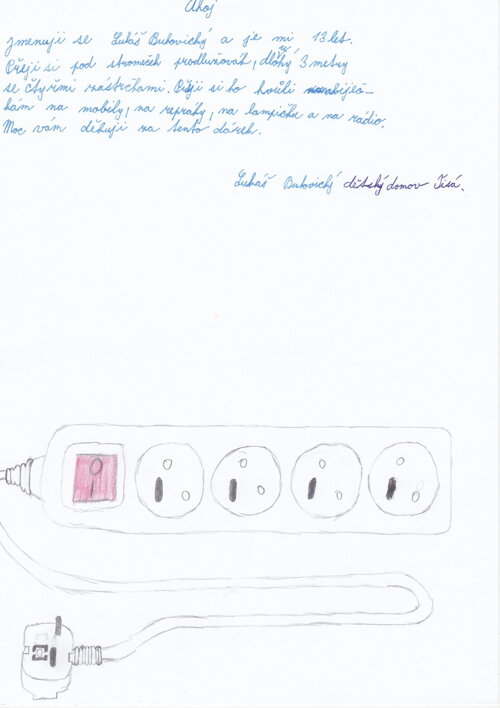 Ahoj
jmenuji se Lukáš Butovický a je mi 13 let.
Přeji si pod stromeček prodlužovák, dlohý 3 metry
se čtyřmi zástrchami. Přeji si ho kvůli nabíječ-
kám na mobily, na repraky, na lampičku a na rádio.
Moc vám děkuji za tento dárek.
Lukáš Butovický dětský domov Tisá.